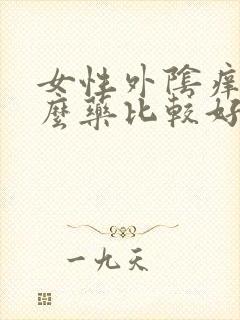 女性外陰癢
麼藥比較好
一九天